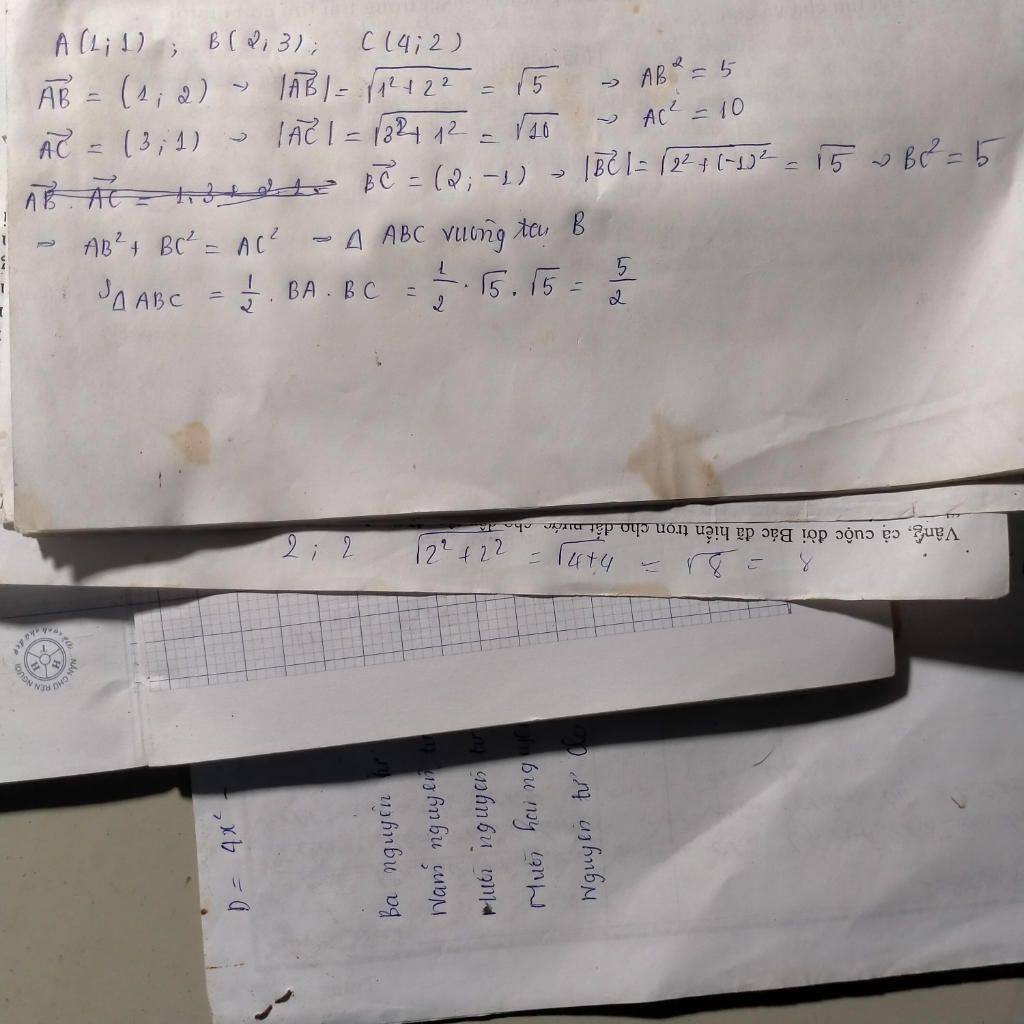 A(1;1) ; B(2;3); C(4;2)
AB = (1;2) → |AB| = √1²+2² = √5 → AB² = 5
AC = (3;1) → |AC| = √3²+1² = √10 → AC² = 10
AB. AC = 1.3+2.1= BC = (2;-1) → |BC| = √2²+(-1)² = √5 → BC² = 5
→ AB² + BC² = AC² → Δ ABC vuông tại B
SΔABC = 1/2 . BA . BC = 1/2 . √5 . √5 = 5/2
Vâng, cả cuộc đời Bác đã hiến trọn cho đất nước, cho
2 ; 2 √2²+2² = √4+4 = √8 = 8
NẮN CHỮ RÈN NGƯỜI
H T H
D = 4x² -
Ba nguyên tử
Năm nguyên tử
Mười nguyên tử
Mười hai nguyên
Nguyên tử